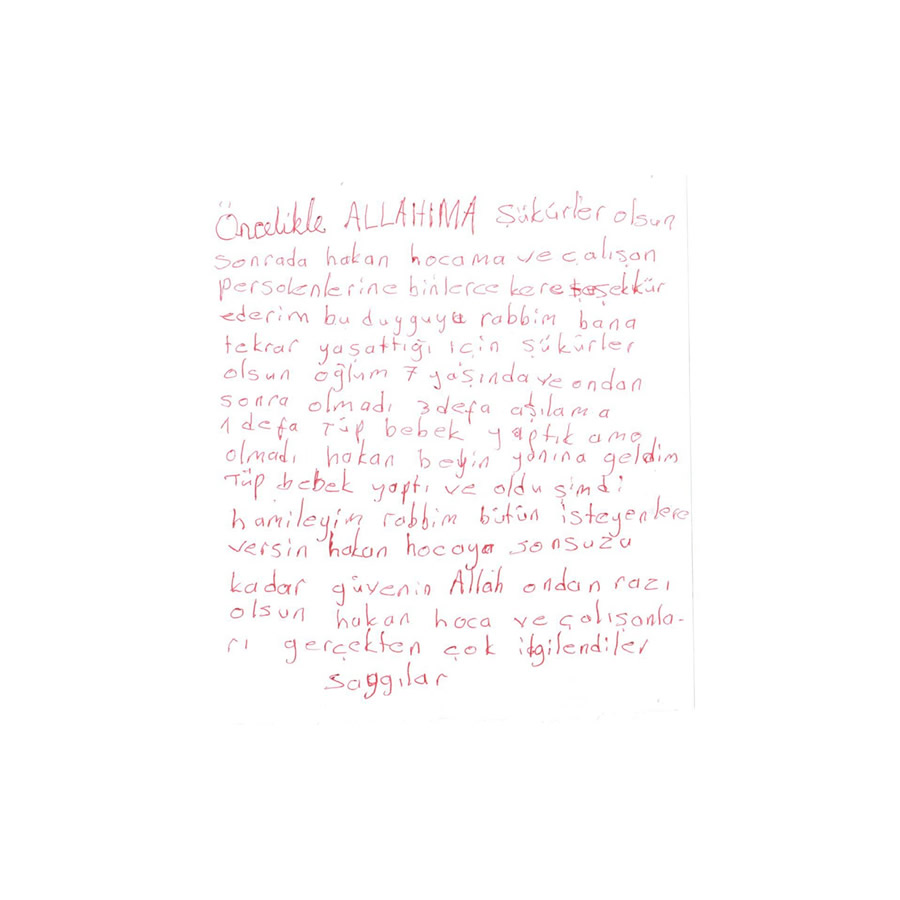 Öncelikle ALLAHIMA şükürler olsun
sonrada hakan hocama ve çalışan
persolenlerine binlerce kere teşekkür
ederim bu dugguyu rabbim bana
tekrar yaşattığı için şükürler
olsun oğlum 7 yaşında ve ondan
sonra olmadı 3 defa aşılama
1 defa Tüp bebek yaptık ama
olmadı hakan beyin yanına geldim
Tüp bebek yaptı ve oldu şimdi
hamileyim rabbim bütün isteyenlere
versin hakan hocaya sonsuza
kadar güvenin Allah ondan razı
olsun hakan hoca ve çalışanla-
rı gerçekten çok ilgilendiler
saggılar